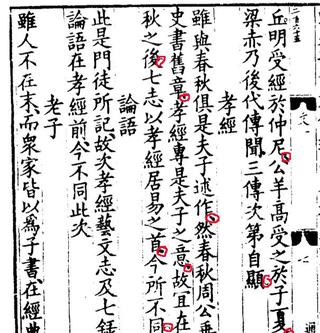 丘明受經於仲尼公羊高受之於子夏
梁赤乃後代傳聞三傳次第自顯
孝經
雖與春秋俱是夫子述作然春秋周公垂
史書舊章孝經專是夫子之意故宜在
秋之後七志以孝經居易之首今所不同
論語
此是門徒所記故次孝經藝文志及七録
論語在孝經前今不同此次
老子
雖人不在末而衆家皆以爲子書在經典